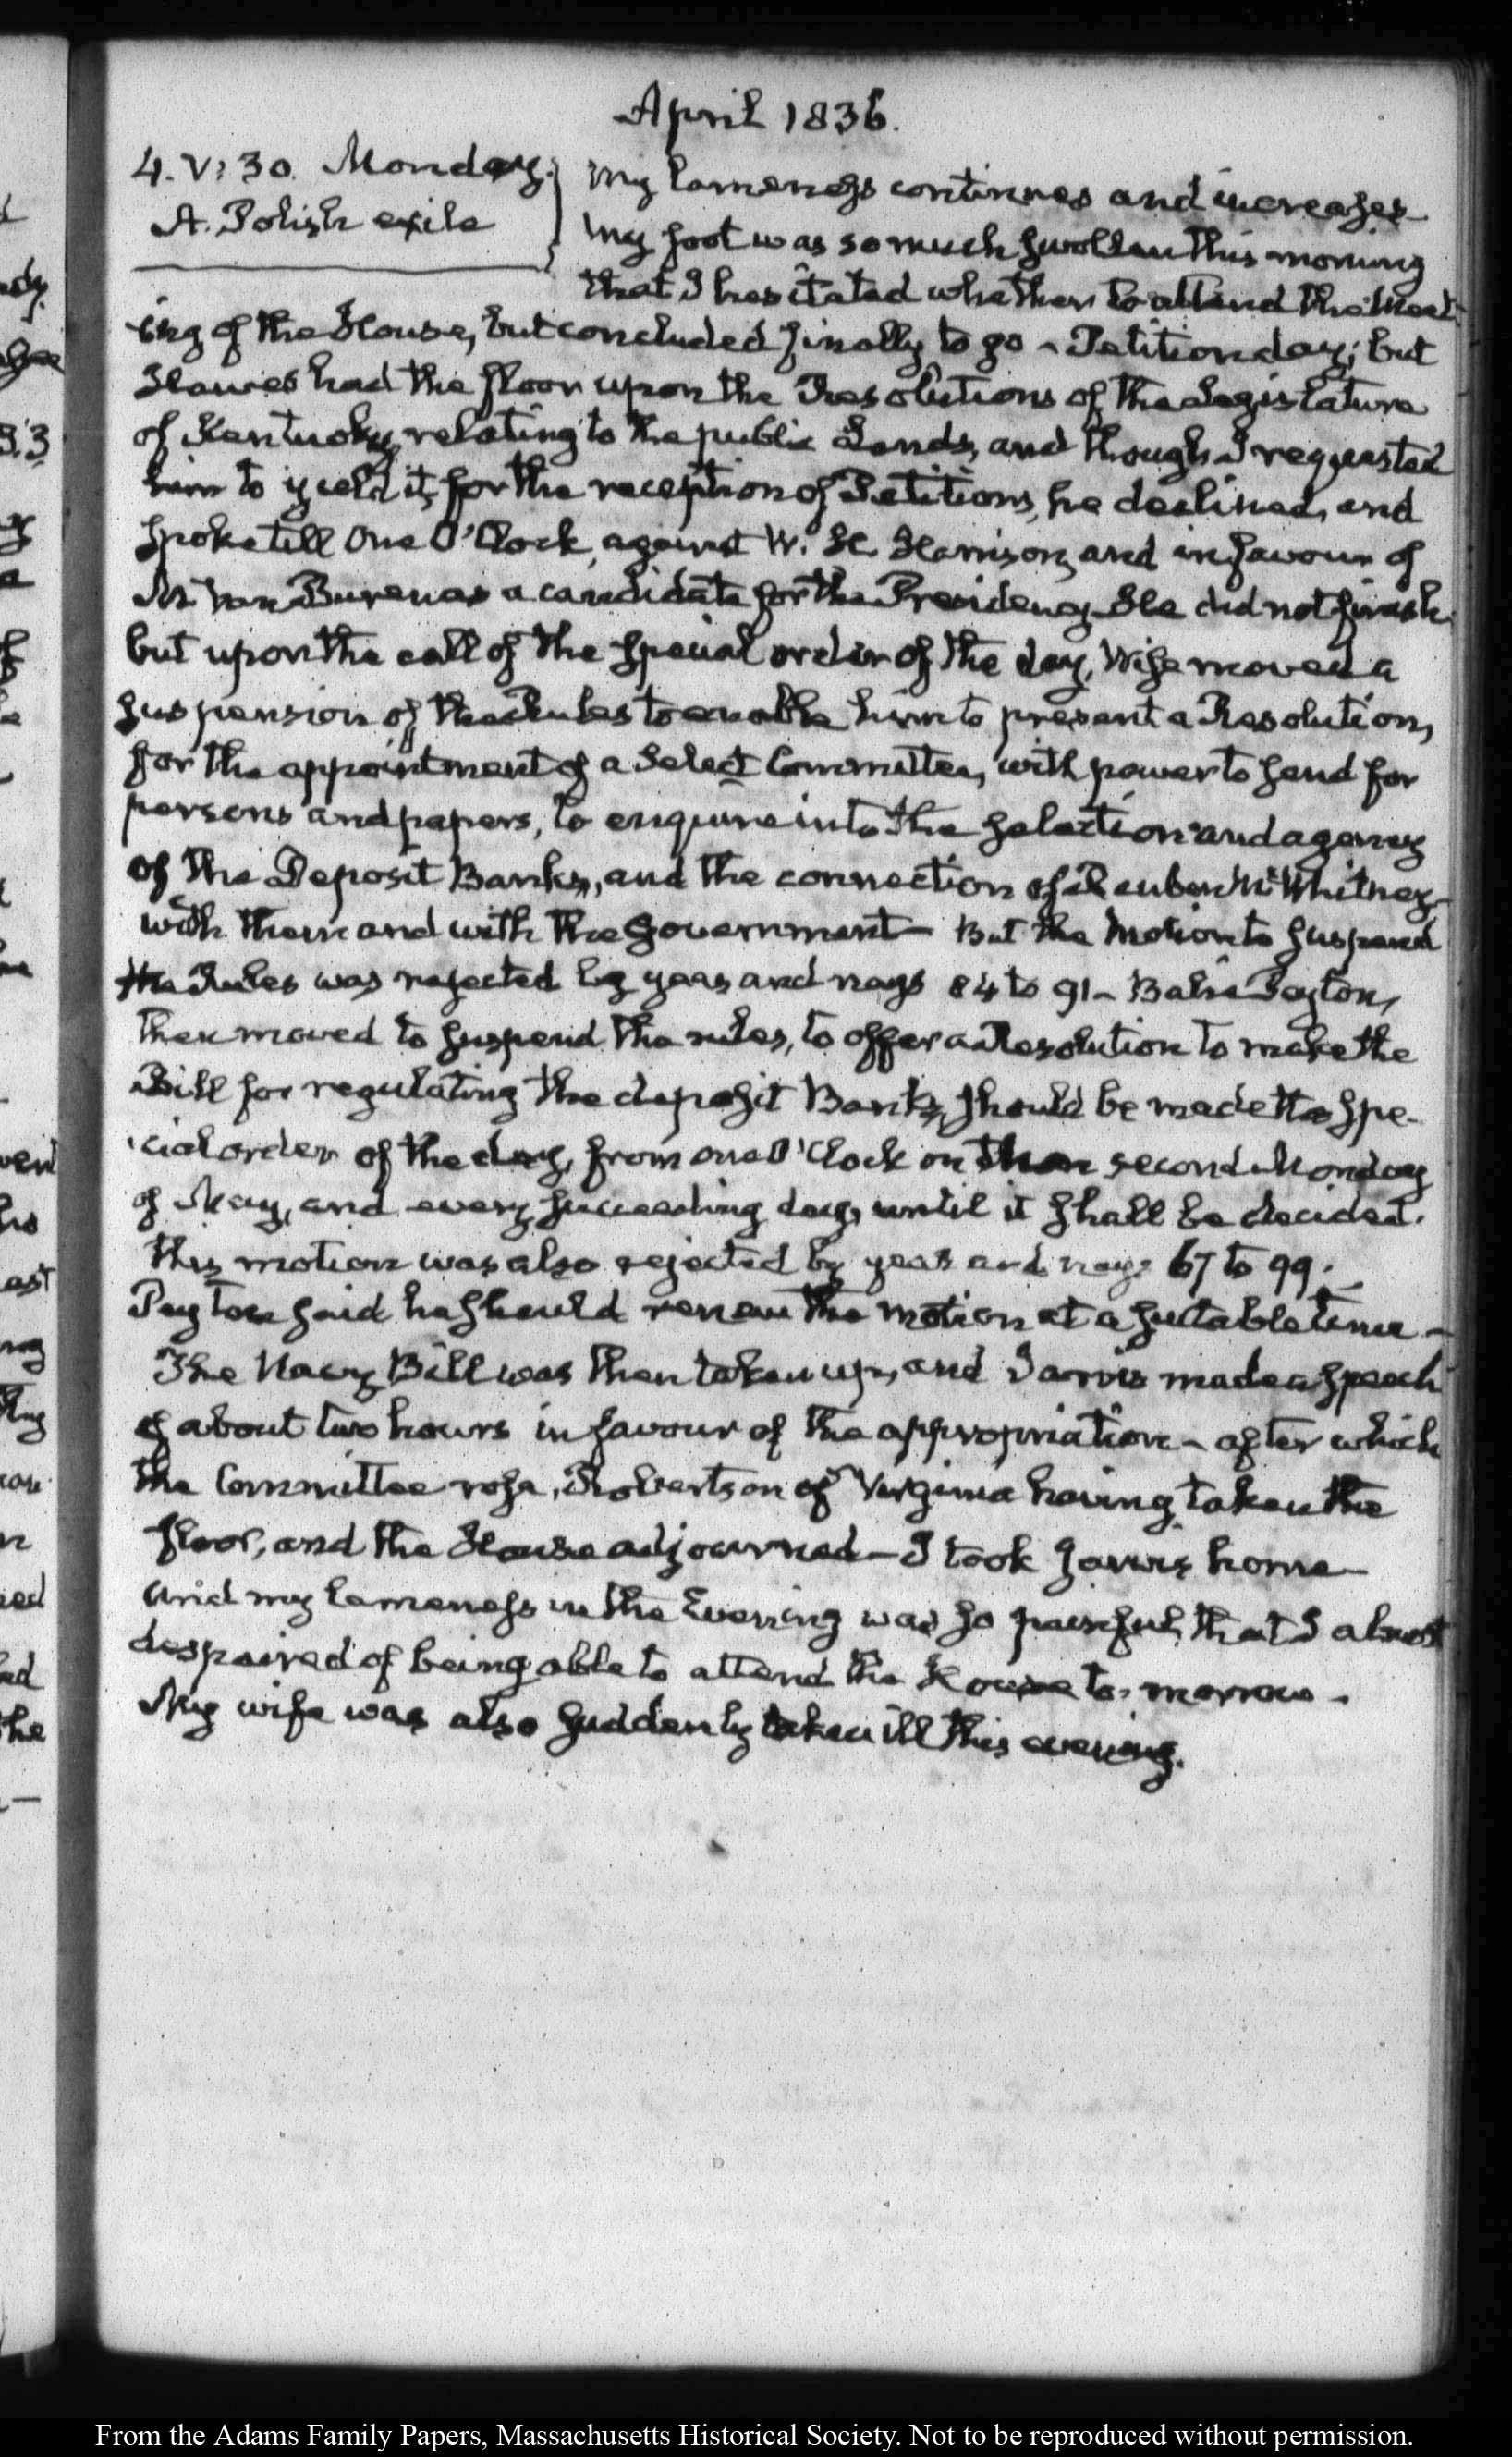 April 1836.
4. V: 30. Monday.
A. Polish exile
My lameness continues and increases
my foot was so much swollen this morning
that I hesitated whether to attend the meet-
ing of the House, but concluded finally to go – Petition day; but
Hawes had the floor upon the Resolutions of the Legislature
of Kentucky, relating to the public Lands, and though I requested
him to yield it, for the reception of Petitions, he declined, and
spoke till One O'Clock, against W. H. Harrison, and in favour of
Mr. Van Buren as a candidate for the Presidency. He did not finish
but upon the call of the special order of the day, Wise moved a
suspension of the Rules to enable him to present a Resolution,
for the appointment of a Select Committee, with power to send for
persons and papers, to enquire into the selection and agency
of the Deposit Banks, and the connection of Reuben M. Whitney
with them and with the Government – But the motion to suspend
the Rules was rejected by yeas and nays 84 to 91 – Balie Peyton,
then moved to suspend the rules, to offer a Resolution to make the
Bill for regulating the deposit Banks, should be made the spe-
cial order of the day, from one O'Clock on the second Monday
of May, and every succeeding day, until it shall be decided.
This motion was also rejected by yeas and nays 67 to 99.
Peyton said he should renew the motion at a suitable time –
The Navy Bill was then taken up, and Jarvis made a speech
of about two hours in favour of the appropriation – after which
the Committee rose, Robertson of Virginia having taken the
floor, and the House adjourned – I took Jarvis home –
and my lameness in the Evening was so painful, that I almost
despaired of being able to attend the House to-morrow –
My wife was also suddenly taken ill this evening.
From the Adams Family Papers, Massachusetts Historical Society. Not to be reproduced without permission.